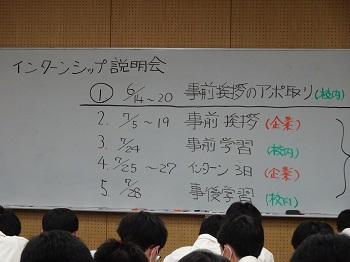 インターンシップ説明会
① 6/14～20 事前挨拶のアポ取り(校内)
2. 7/5～19 事前挨拶(企業)
3. 7/24 事前学習(校内)
4. 7/25～27 インターン3日(企業)
5. 7/28 事後学習(校内)